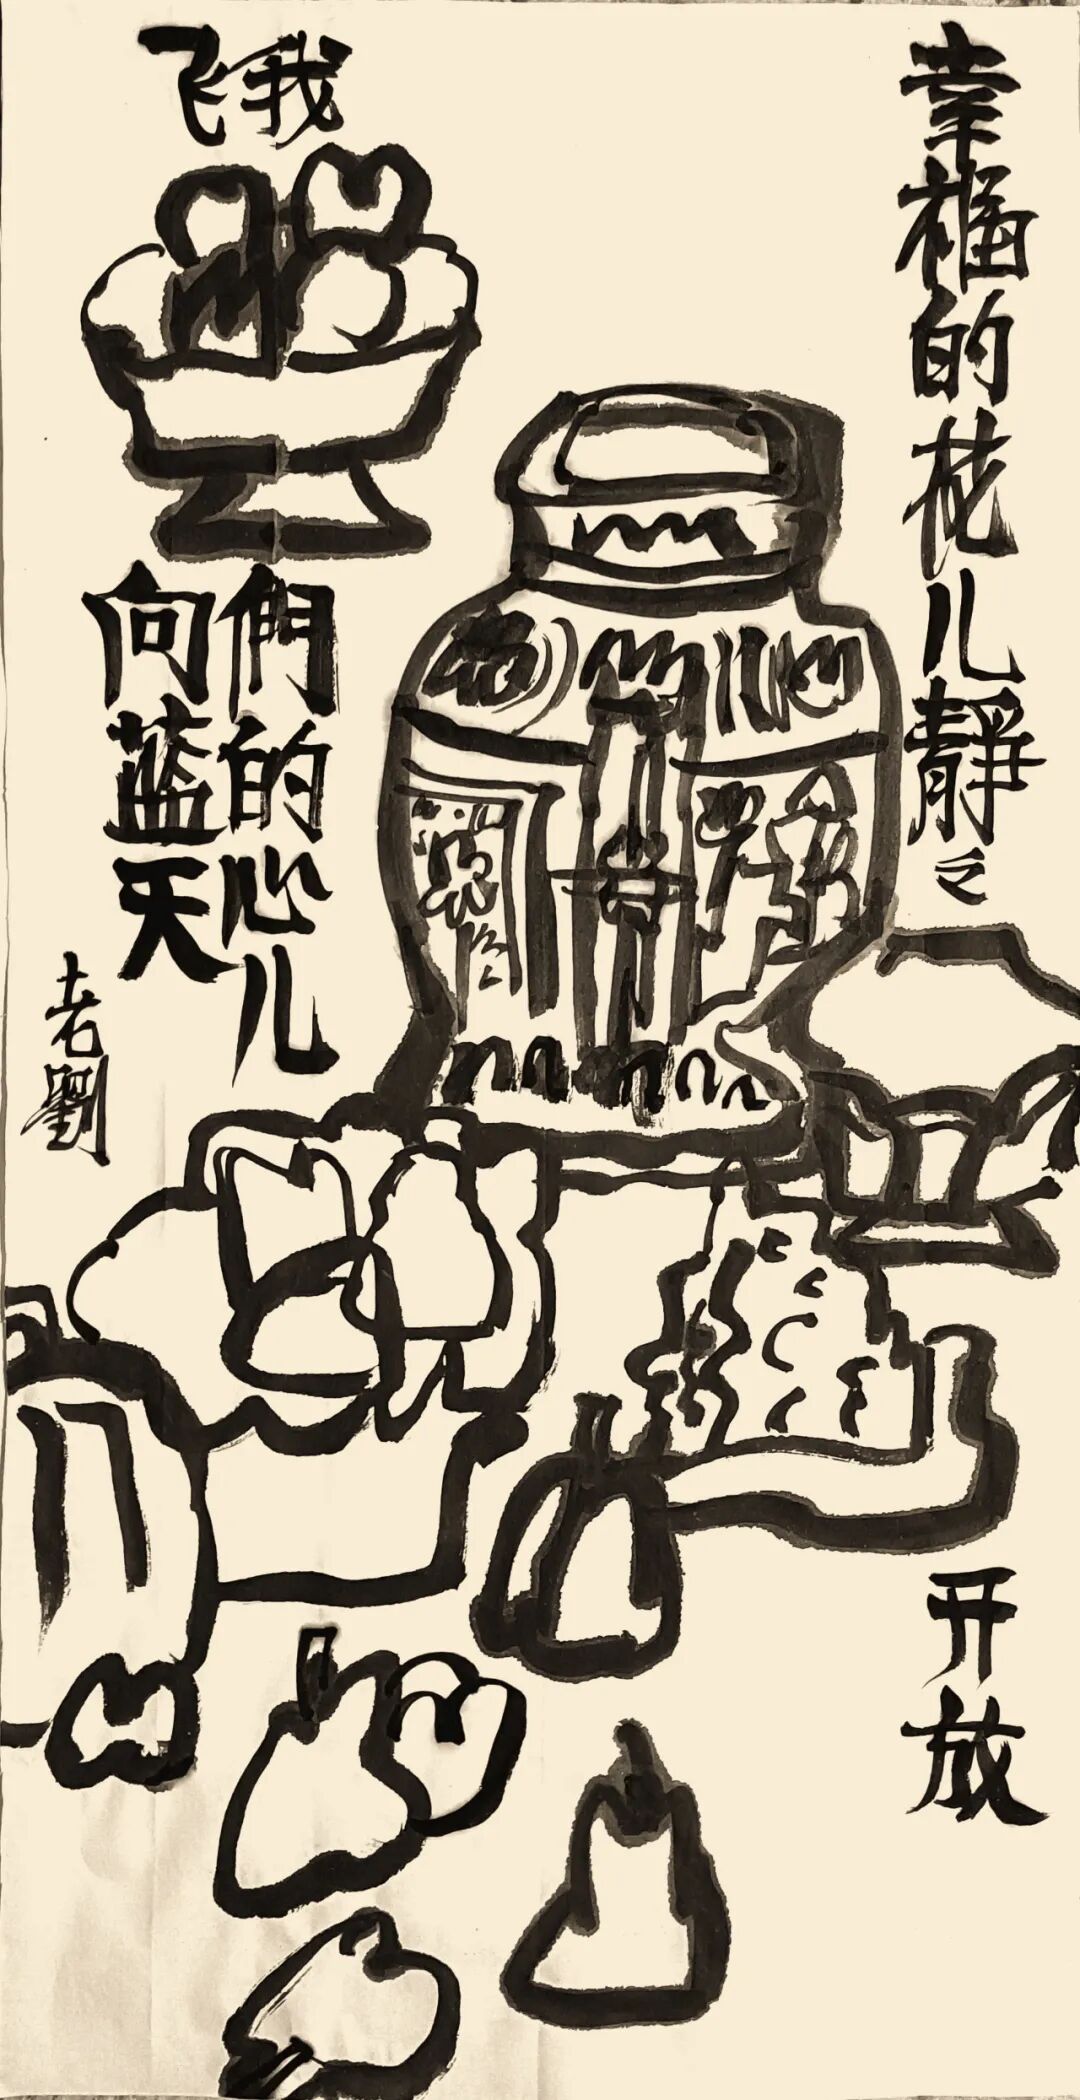 幸福的花儿静々开放
我們的心儿
飞向蓝天
老劉